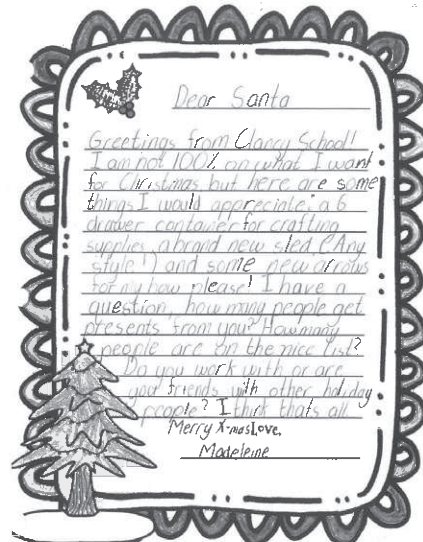 Dear Santa
Greetings from Clancy School!
I am not 100% on what I want
for Christmas but here are some
things I would appreciate: a 6
drawer container for crafting
supplies, a brand new sled, (Any
style!) and some new arrows
for my bow please! I have a
question, how many people get
presents from you? How many
people are on the nice list?
Do you work with or are
you friends with other holiday
people? I think thats all
Merry X-mas Love,
Madeleine